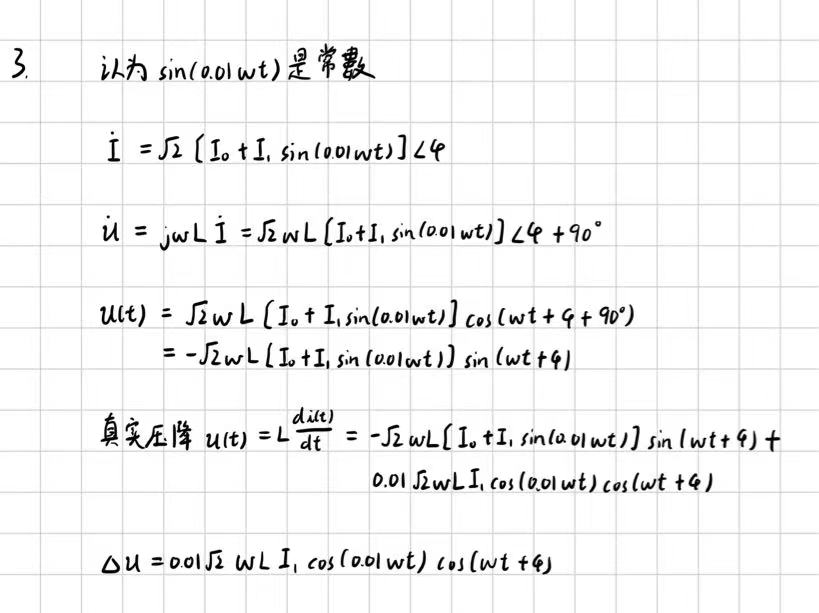 3. 认为 sin(0.01wt) 是常數
İ = √2 [I₀ + I₁ sin(0.01wt)]∠φ
u̇ = jwL İ = √2 wL [I₀+I₁ sin(0.01wt)]∠φ+90°
u(t) = √2 wL [I₀ + I₁ sin(0.01wt)] cos(wt+φ+90°)
= -√2 wL [I₀+I₁ sin(0.01wt)] sin(wt+φ)
真实压降 u(t) = L di(t)/dt = -√2 wL[I₀+I₁ sin(0.01wt)] sin(wt+φ)+
0.01√2wLI₁ cos(0.01wt) cos(wt+φ)
Δu = 0.01√2 wL I₁ cos(0.01wt) cos(wt+φ)